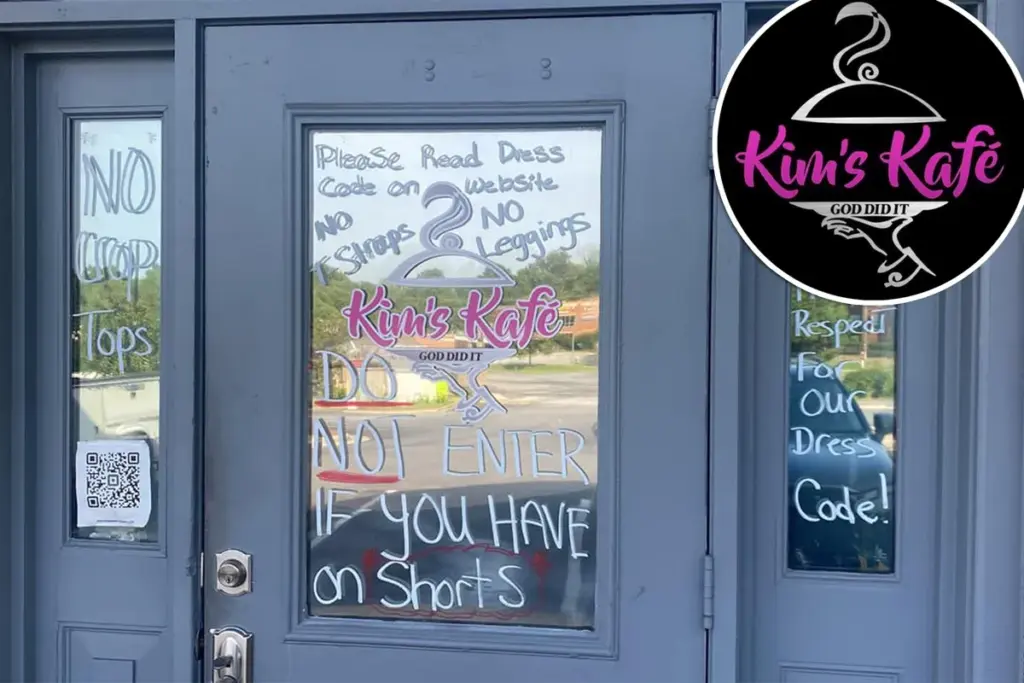 NO
CROP
Tops
Please Read Dress
Code on Website
NO
T Straps
NO
Leggings
Kim's Kafé
GOD DID IT
DO
NOT ENTER
IF YOU HAVE
on Shorts
Kim's Kafé
GOD DID IT
Respect
For
Our
Dress
Code!